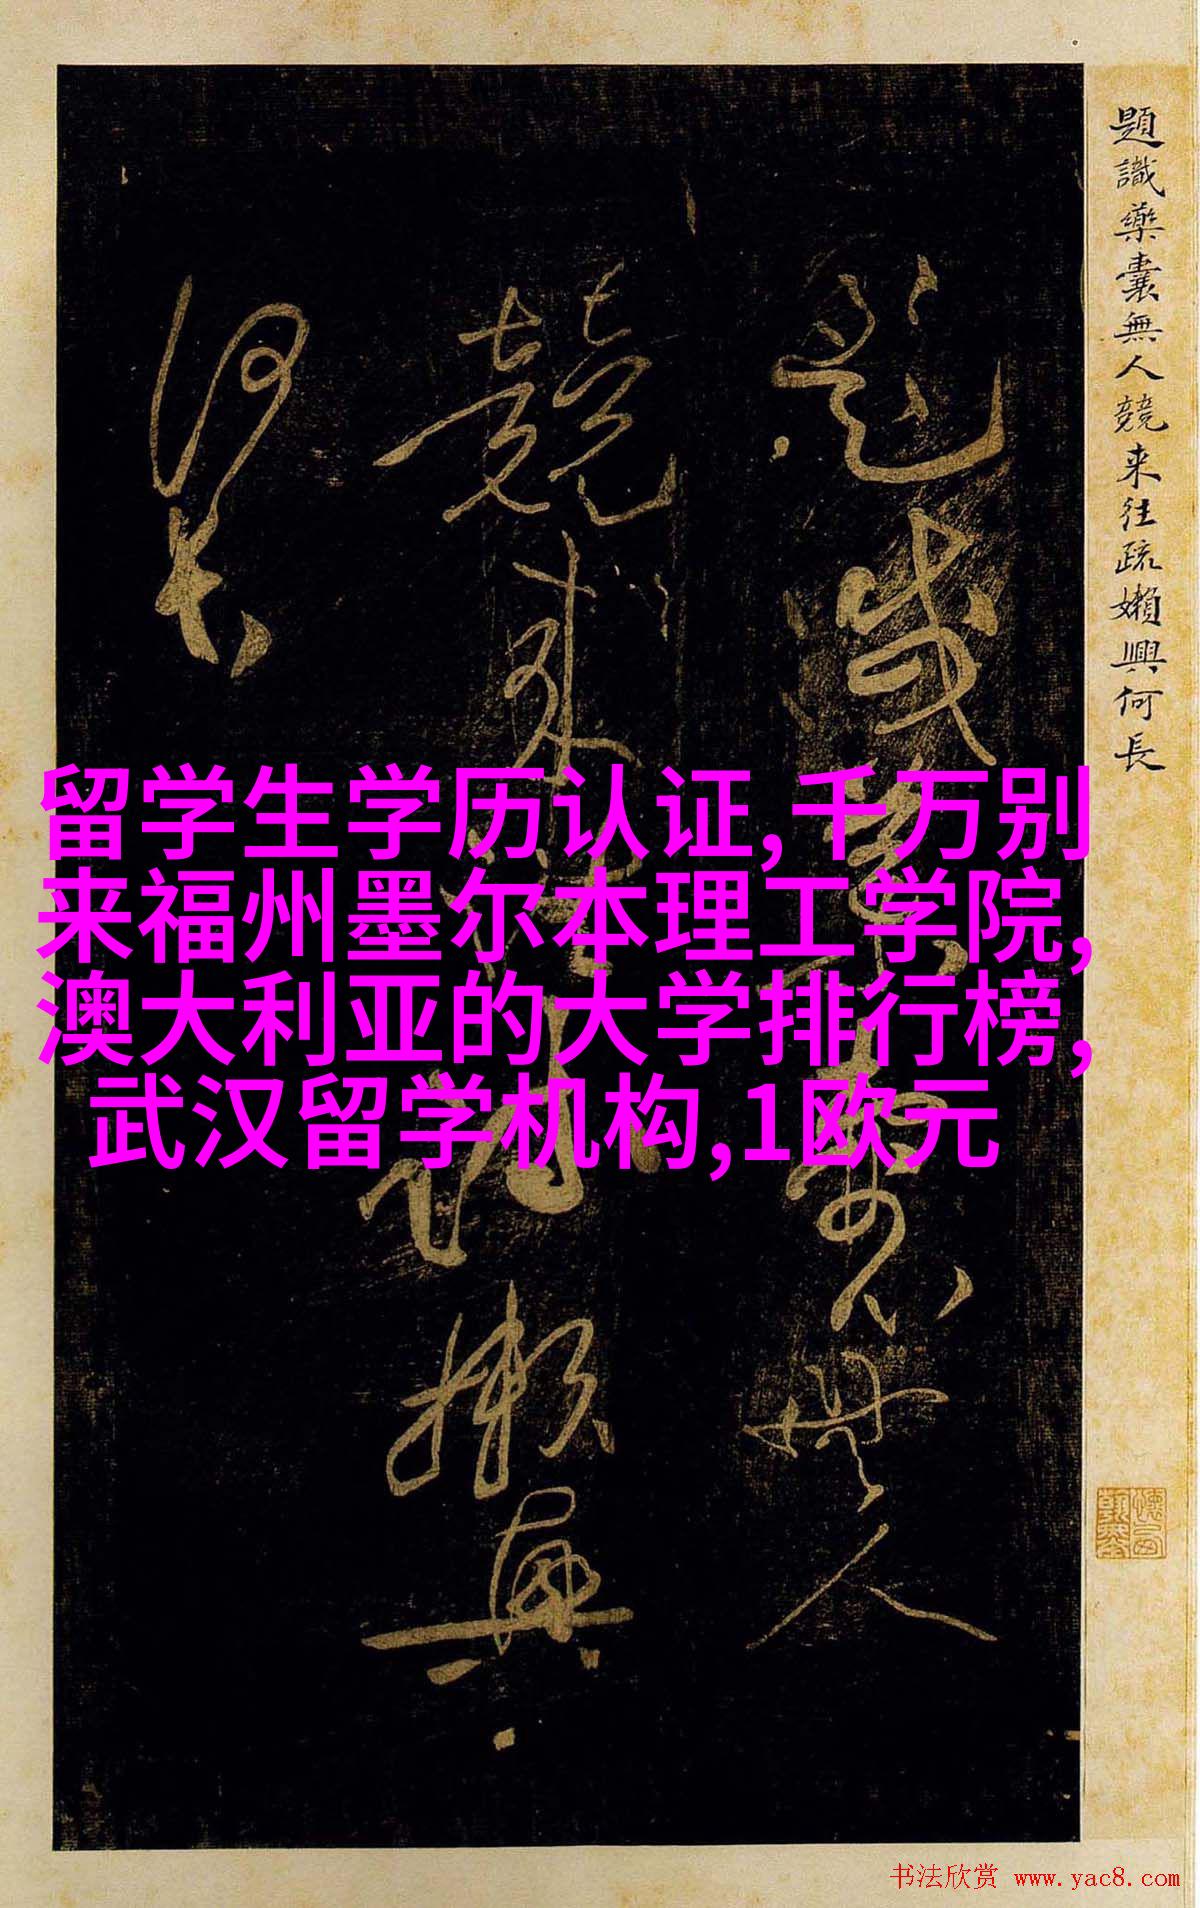 題識藥囊無人競来往疏嬾興何長
留学生学历认证,千万别
来福州墨尔本理工学院,
澳大利亚的大学排行榜,
武汉留学机构,1欧元
无人
競来
嬾興
何長
书法欣赏 www.yac8.com